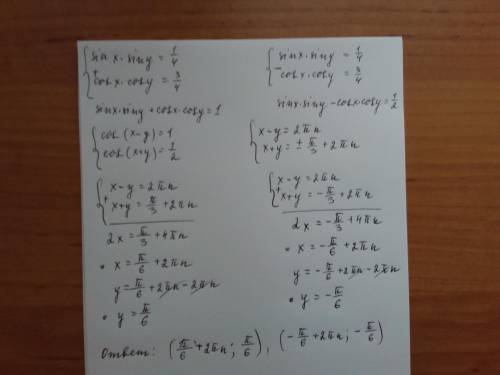 { sin x · sin y = 1/4
+ cos x · cos y = 3/4
sin x · sin y + cos x · cos y = 1
{ cos (x-y) = 1
cos (x+y) = 1/2
{ x-y = 2πn
+ x+y = π/3 + 2πn
2x = π/3 + 4πn
• x = π/6 + 2πn
y = π/6 + 2πn - 2πn
• y = π/6
{ sin x · sin y = 1/4
- cos x · cos y = 3/4
sin x · sin y - cos x · cos y = 1/2
{ x-y = 2πn
x+y = ± π/3 + 2πn
{ x-y = 2πn
+ x+y = -π/3 + 2πn
2x = -π/3 + 4πn
• x = -π/6 + 2πn
y = -π/6 + 2πn - 2πn
• y = -π/6
Ответ: (π/6 + 2πn; π/6), (-π/6 + 2πn; -π/6)